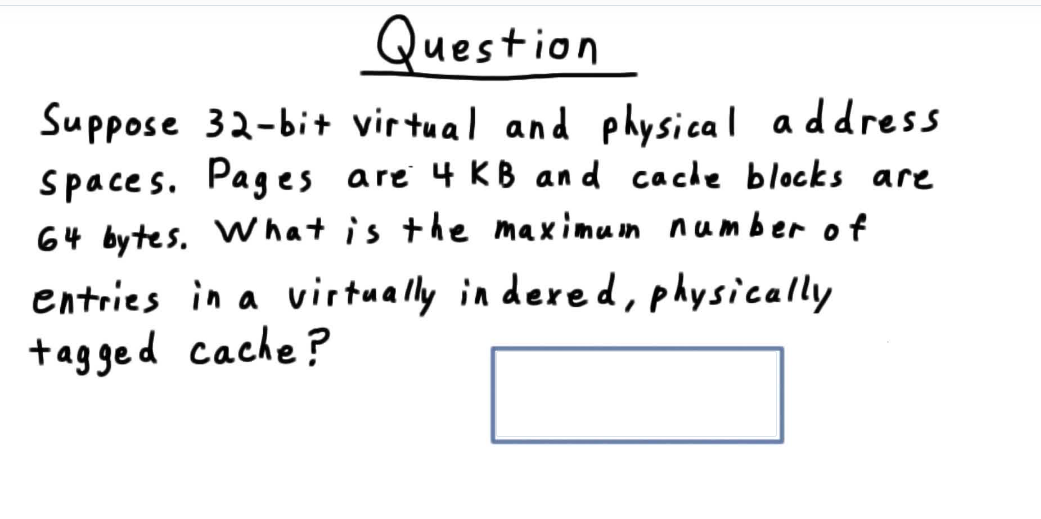 Question
Suppose 32-bit virtual and physical address
spaces. Pages are 4 KB and cache blocks are
64 bytes. What is the maximum number of
entries in a virtually indexed, physically
tagged cache?